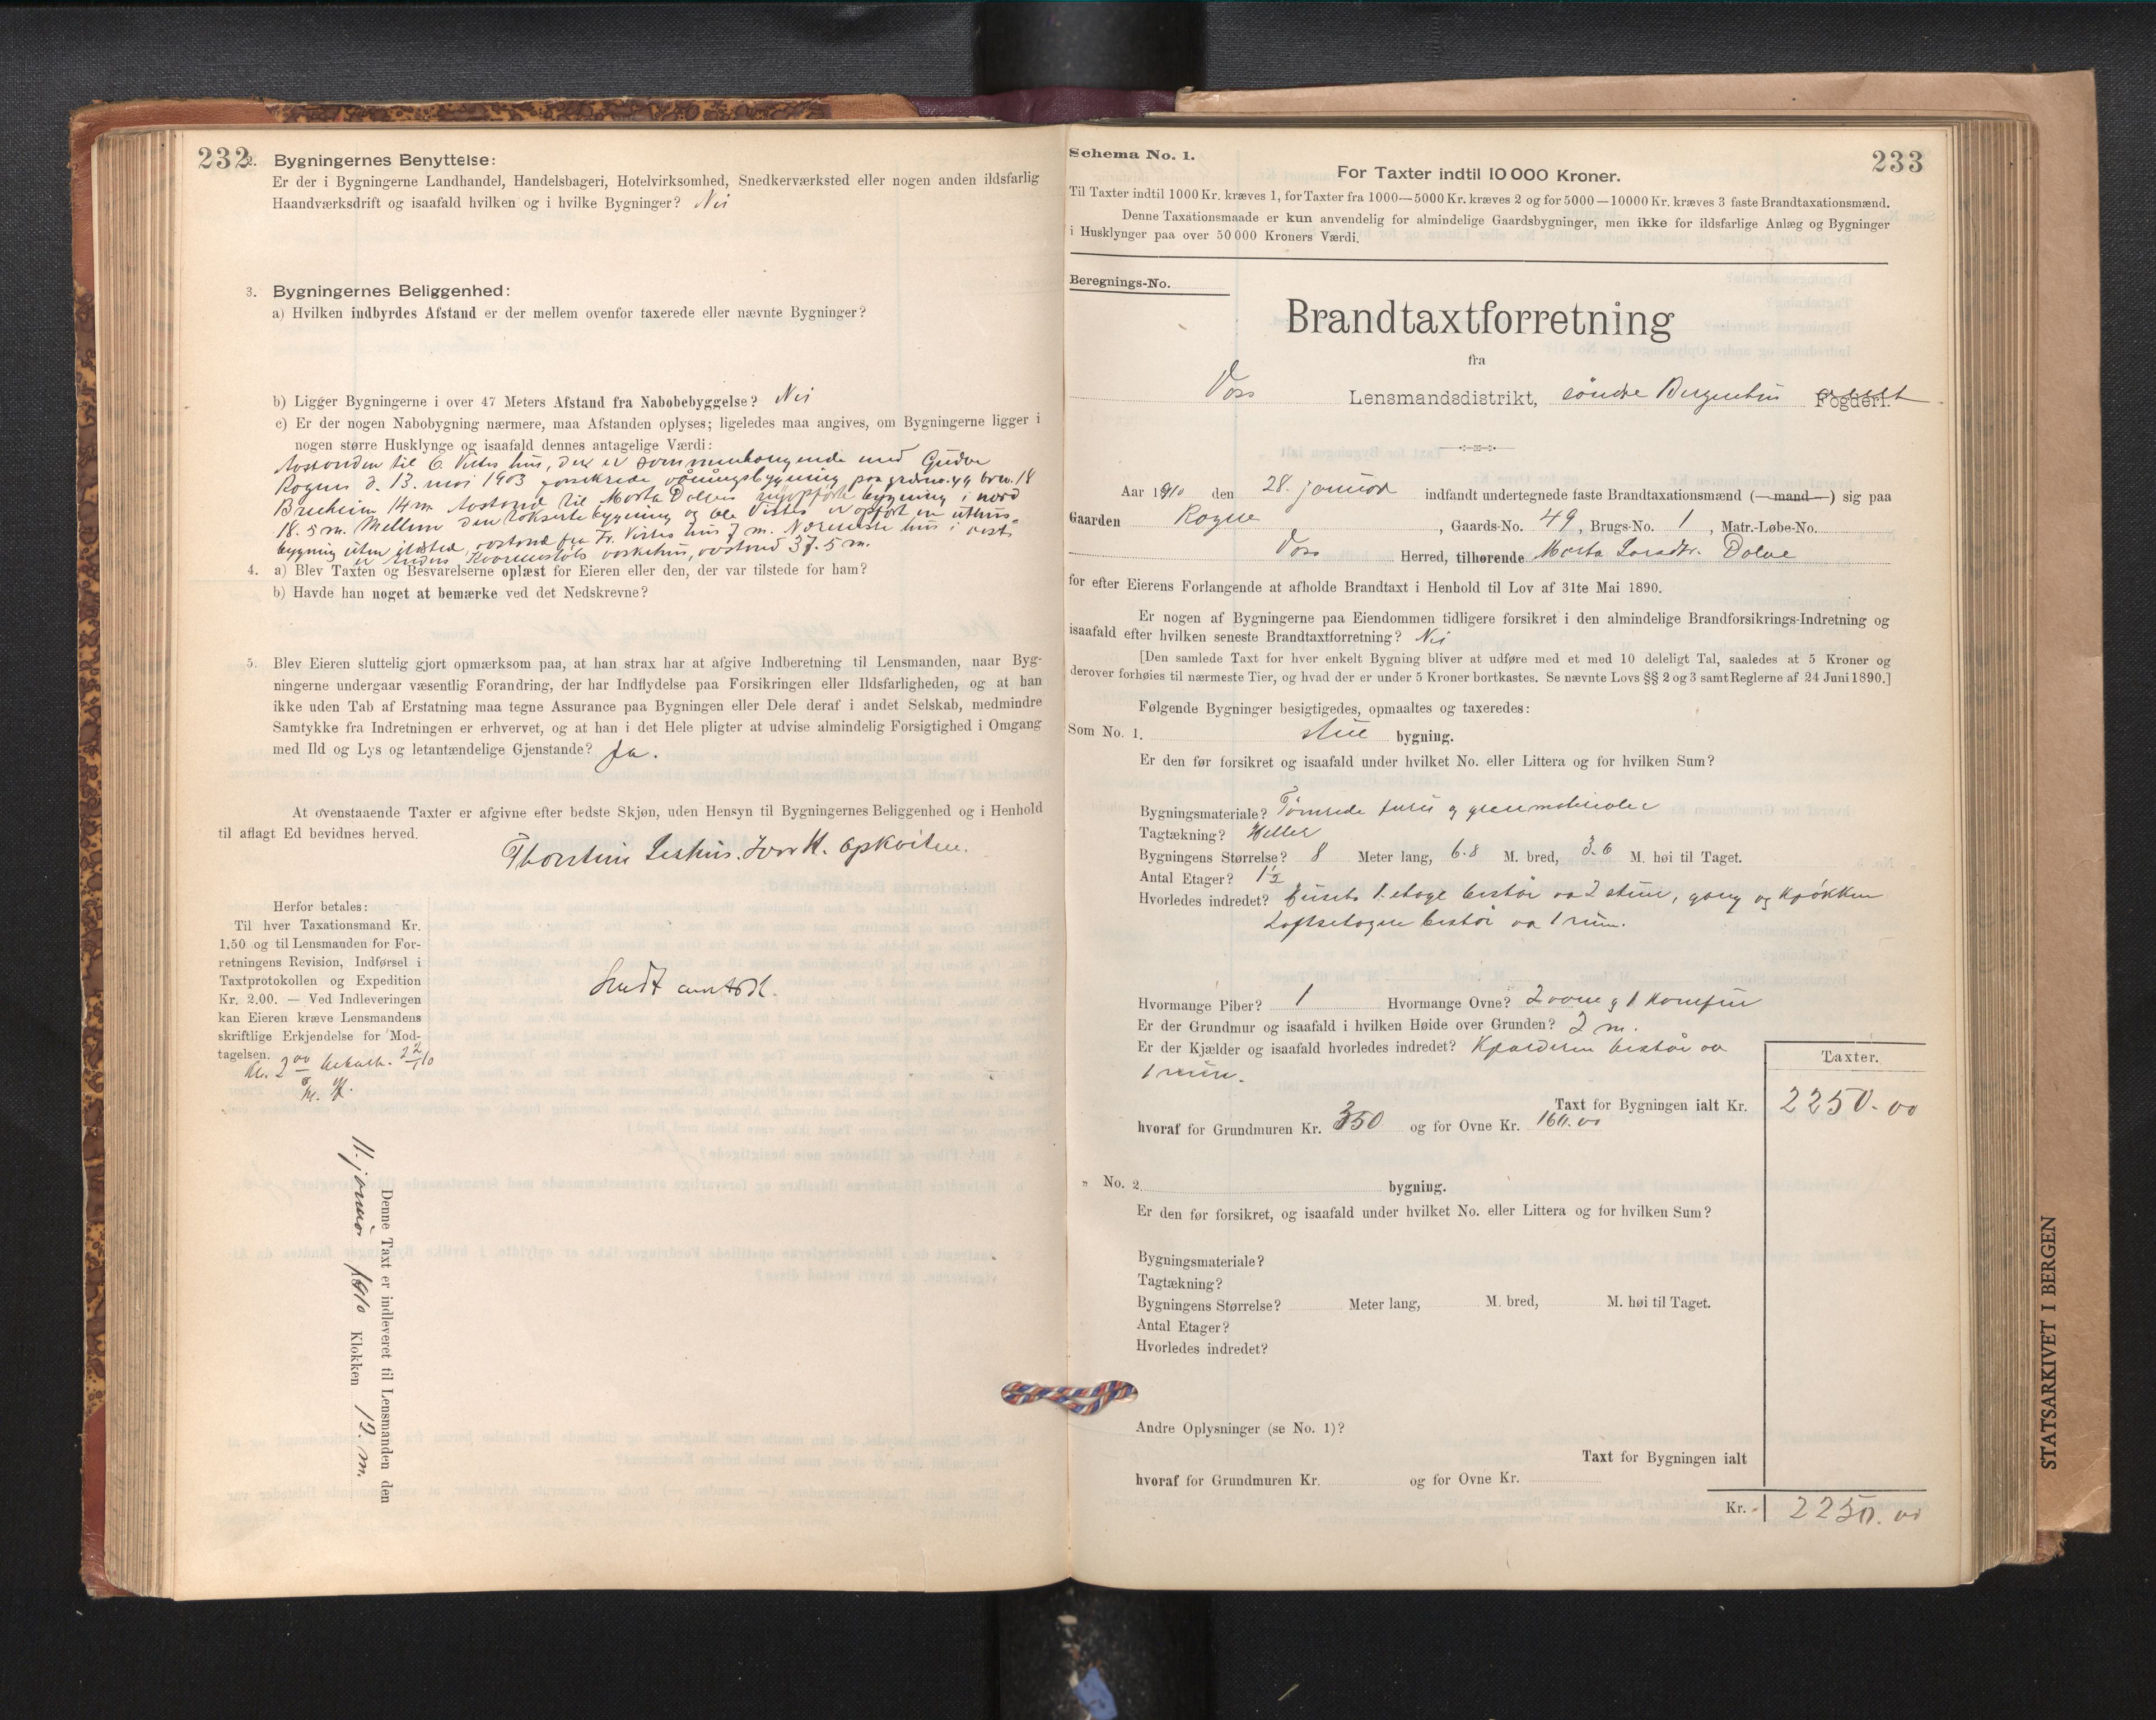 232
2. Bygningernes Benyttelse:
Er der i Bygningerne Landhandel, Handelsbageri, Hotelvirksomhed, Snedkerværksted eller nogen anden ildsfarlig
Haandværksdrift og isaafald hvilken og i hvilke Bygninger? Nei
3. Bygningernes Beliggenhed:
a) Hvilken indbyrdes Afstand er der mellem ovenfor taxerede eller nævnte Bygninger?
b) Ligger Bygningerne i over 47 Meters Afstand fra Nabobebyggelse? Nei
c) Er der nogen Nabobygning nærmere, maa Afstanden oplyses; ligeledes maa angives, om Bygningerne ligger i
nogen større Husklynge og isaafald dennes antagelige Værdi:
Avstanden til O. Vistes hus, der er sammenhængende med Gudve
Rogne d. 13. mai 1903 forsikrede våningsbygning paa grdno. 49 brno. 18
Breiheim 14 m Avstand til Marta Dolves nyopförte bygning i nord
18.5 m. Mellem den takserte bygning og Ole Vistes er opfört en uthus-
bygning uten ildsted, avstand fra Fr. Vistes hus 7 m. Nærmeste hus i vest
er Anders Kvarmestøls vaskehus, avstand 37.5 m.
4. a) Blev Taxten og Besvarelserne oplæst for Eieren eller den, der var tilstede for ham?
b) Havde han noget at bemærke ved det Nedskrevne?
5. Blev Eieren sluttelig gjort opmærksom paa, at han strax har at afgive Indberetning til Lensmanden, naar Byg-
ningerne undergaar væsentlig Forandring, der har Indflydelse paa Forsikringen eller Ildsfarligheden, og at han
ikke uden Tab af Erstatning maa tegne Assurance paa Bygningen eller Dele deraf i andet Selskab, medmindre
Samtykke fra Indretningen er erhvervet, og at han i det Hele pligter at udvise almindelig Forsigtighed i Omgang
med Ild og Lys og letantændelige Gjenstande? Ja.
At ovenstaaende Taxter er afgivne efter bedste Skjøn, uden Hensyn til Bygningernes Beliggenhed og i Henhold
til aflagt Ed bevidnes herved.
Thorstein Leshus. Ivar H. Opkviten.
Herfor betales:
Til hver Taxationsmand Kr.
1.50 og til Lensmanden for For-
retningens Revision, Indførsel i
Taxtprotokollen og Expedition
Kr. 2.00. — Ved Indleveringen
kan Eieren kræve Lensmandens
skriftlige Erkjendelse for Mod-
tagelsen.
Kr. 2 00 betalt.
Sendt
Denne Taxt er indleveret til Lensmanden den
11. januar 1910 Klokken 12. m.
233
Schema No. 1.
For Taxter indtil 10 000 Kroner.
Til Taxter indtil 1000 Kr. kræves 1, for Taxter fra 1000—5000 Kr. kræves 2 og for 5000—10000 Kr. kræves 3 faste Brandtaxationsmænd.
Denne Taxationsmaade er kun anvendelig for almindelige Gaardsbygninger, men ikke for ildsfarlige Anlæg og Bygninger
i Husklynger paa over 50 000 Kroners Værdi.
Beregnings-No.
Brandtaxtforretning
fra
Voss Lensmandsdistrikt, søndre Bergenhus Fogderi.
Aar 1910 den 28. januar indfandt undertegnede faste Brandtaxationsmænd (— mand —) sig paa
Gaarden Rogne, Gaards-No. 49, Brugs-No. 1, Matr.-Løbe-No.
Voss Herred, tilhørende Marta Larsdtr. Dolve
for efter Eierens Forlangende at afholde Brandtaxt i Henhold til Lov af 31te Mai 1890.
Er nogen af Bygningerne paa Eiendommen tidligere forsikret i den almindelige Brandforsikrings-Indretning og
isaafald efter hvilken seneste Brandtaxtforretning? Nei
[Den samlede Taxt for hver enkelt Bygning bliver at udføre med et med 10 deleligt Tal, saaledes at 5 Kroner og
derover forhøies til nærmeste Tier, og hvad der er under 5 Kroner bortkastes. Se nævnte Lovs §§ 2 og 3 samt Reglerne af 24 Juni 1890.]
Følgende Bygninger besigtigedes, opmaaltes og taxeredes:
Som No. 1. stue bygning.
Er den før forsikret og isaafald under hvilket No. eller Littera og for hvilken Sum?
Bygningsmateriale? Tømrede furu og granmaterialer
Tagtækning? Heller
Bygningens Størrelse? 8 Meter lang, 6.8 M. bred, 3.6 M. høi til Taget.
Antal Etager? 1½
Hvorledes indredet? Husets 1. etage består av 2 stuer, gang og kjøkken
Loftsetagen består av 1 rum.
Hvormange Piber? 1 Hvormange Ovne? 2 ovne og 1 komfur
Er der Grundmur og isaafald i hvilken Høide over Grunden? 2 m.
Er der Kjælder og isaafald hvorledes indredet? Kjælderen består av
1 rum.
Taxter.
Taxt for Bygningen ialt Kr. 2250.00
hvoraf for Grundmuren Kr. 350 og for Ovne Kr. 160.00
„ No. 2 bygning.
Er den før forsikret, og isaafald under hvilket No. eller Littera og for hvilken Sum?
Bygningsmateriale?
Tagtækning?
Bygningens Størrelse? Meter lang, M. bred, M. høi til Taget.
Antal Etager?
Hvorledes indredet?
Andre Oplysninger (se No. 1)?
Taxt for Bygningen ialt
hvoraf for Grundmuren Kr. og for Ovne Kr.
Kr. 2250.00
STATSARKIVET I BERGEN